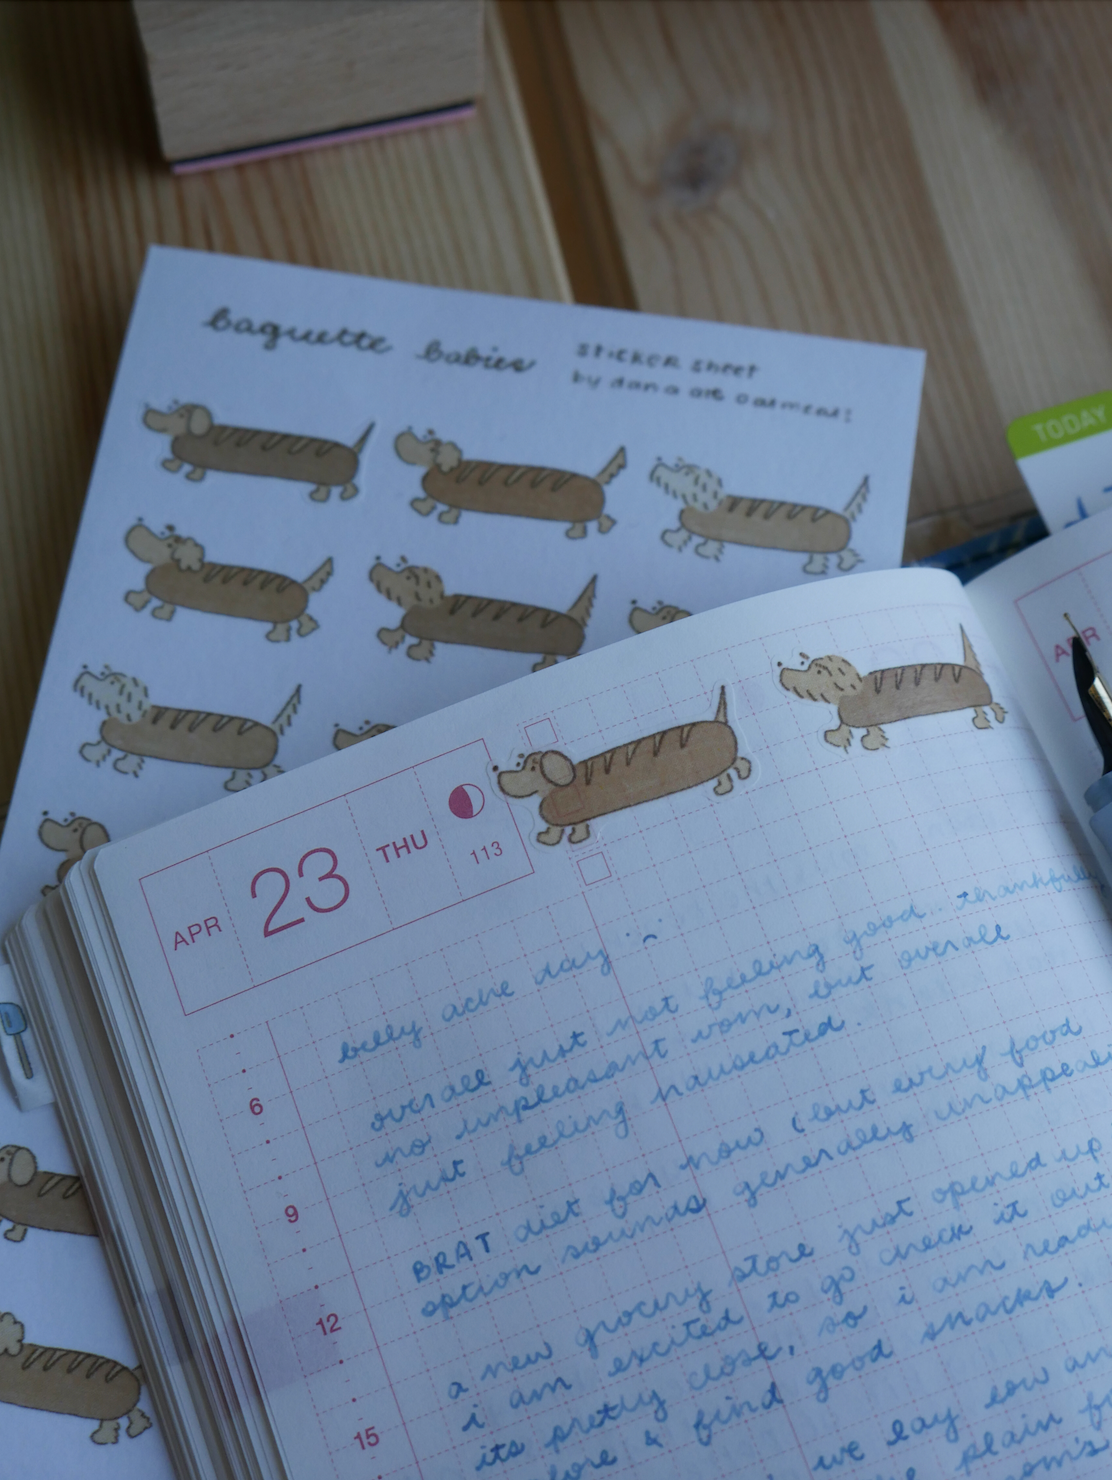 baguette babies
sticker sheet
by dana at oatmeal!
TODAY
APR
23
THU
113
APR
6
9
12
15
belly ache day :(
overall just not feeling good. thankfully
no unpleasant vom, but overall
just feeling nauseated.
BRAT diet for now (but every food
option sounds generally unappeali
a new grocery store just opened up
i am excited to go check it out
its pretty close, so i am read
& find good snacks.
we lay low an
plain f